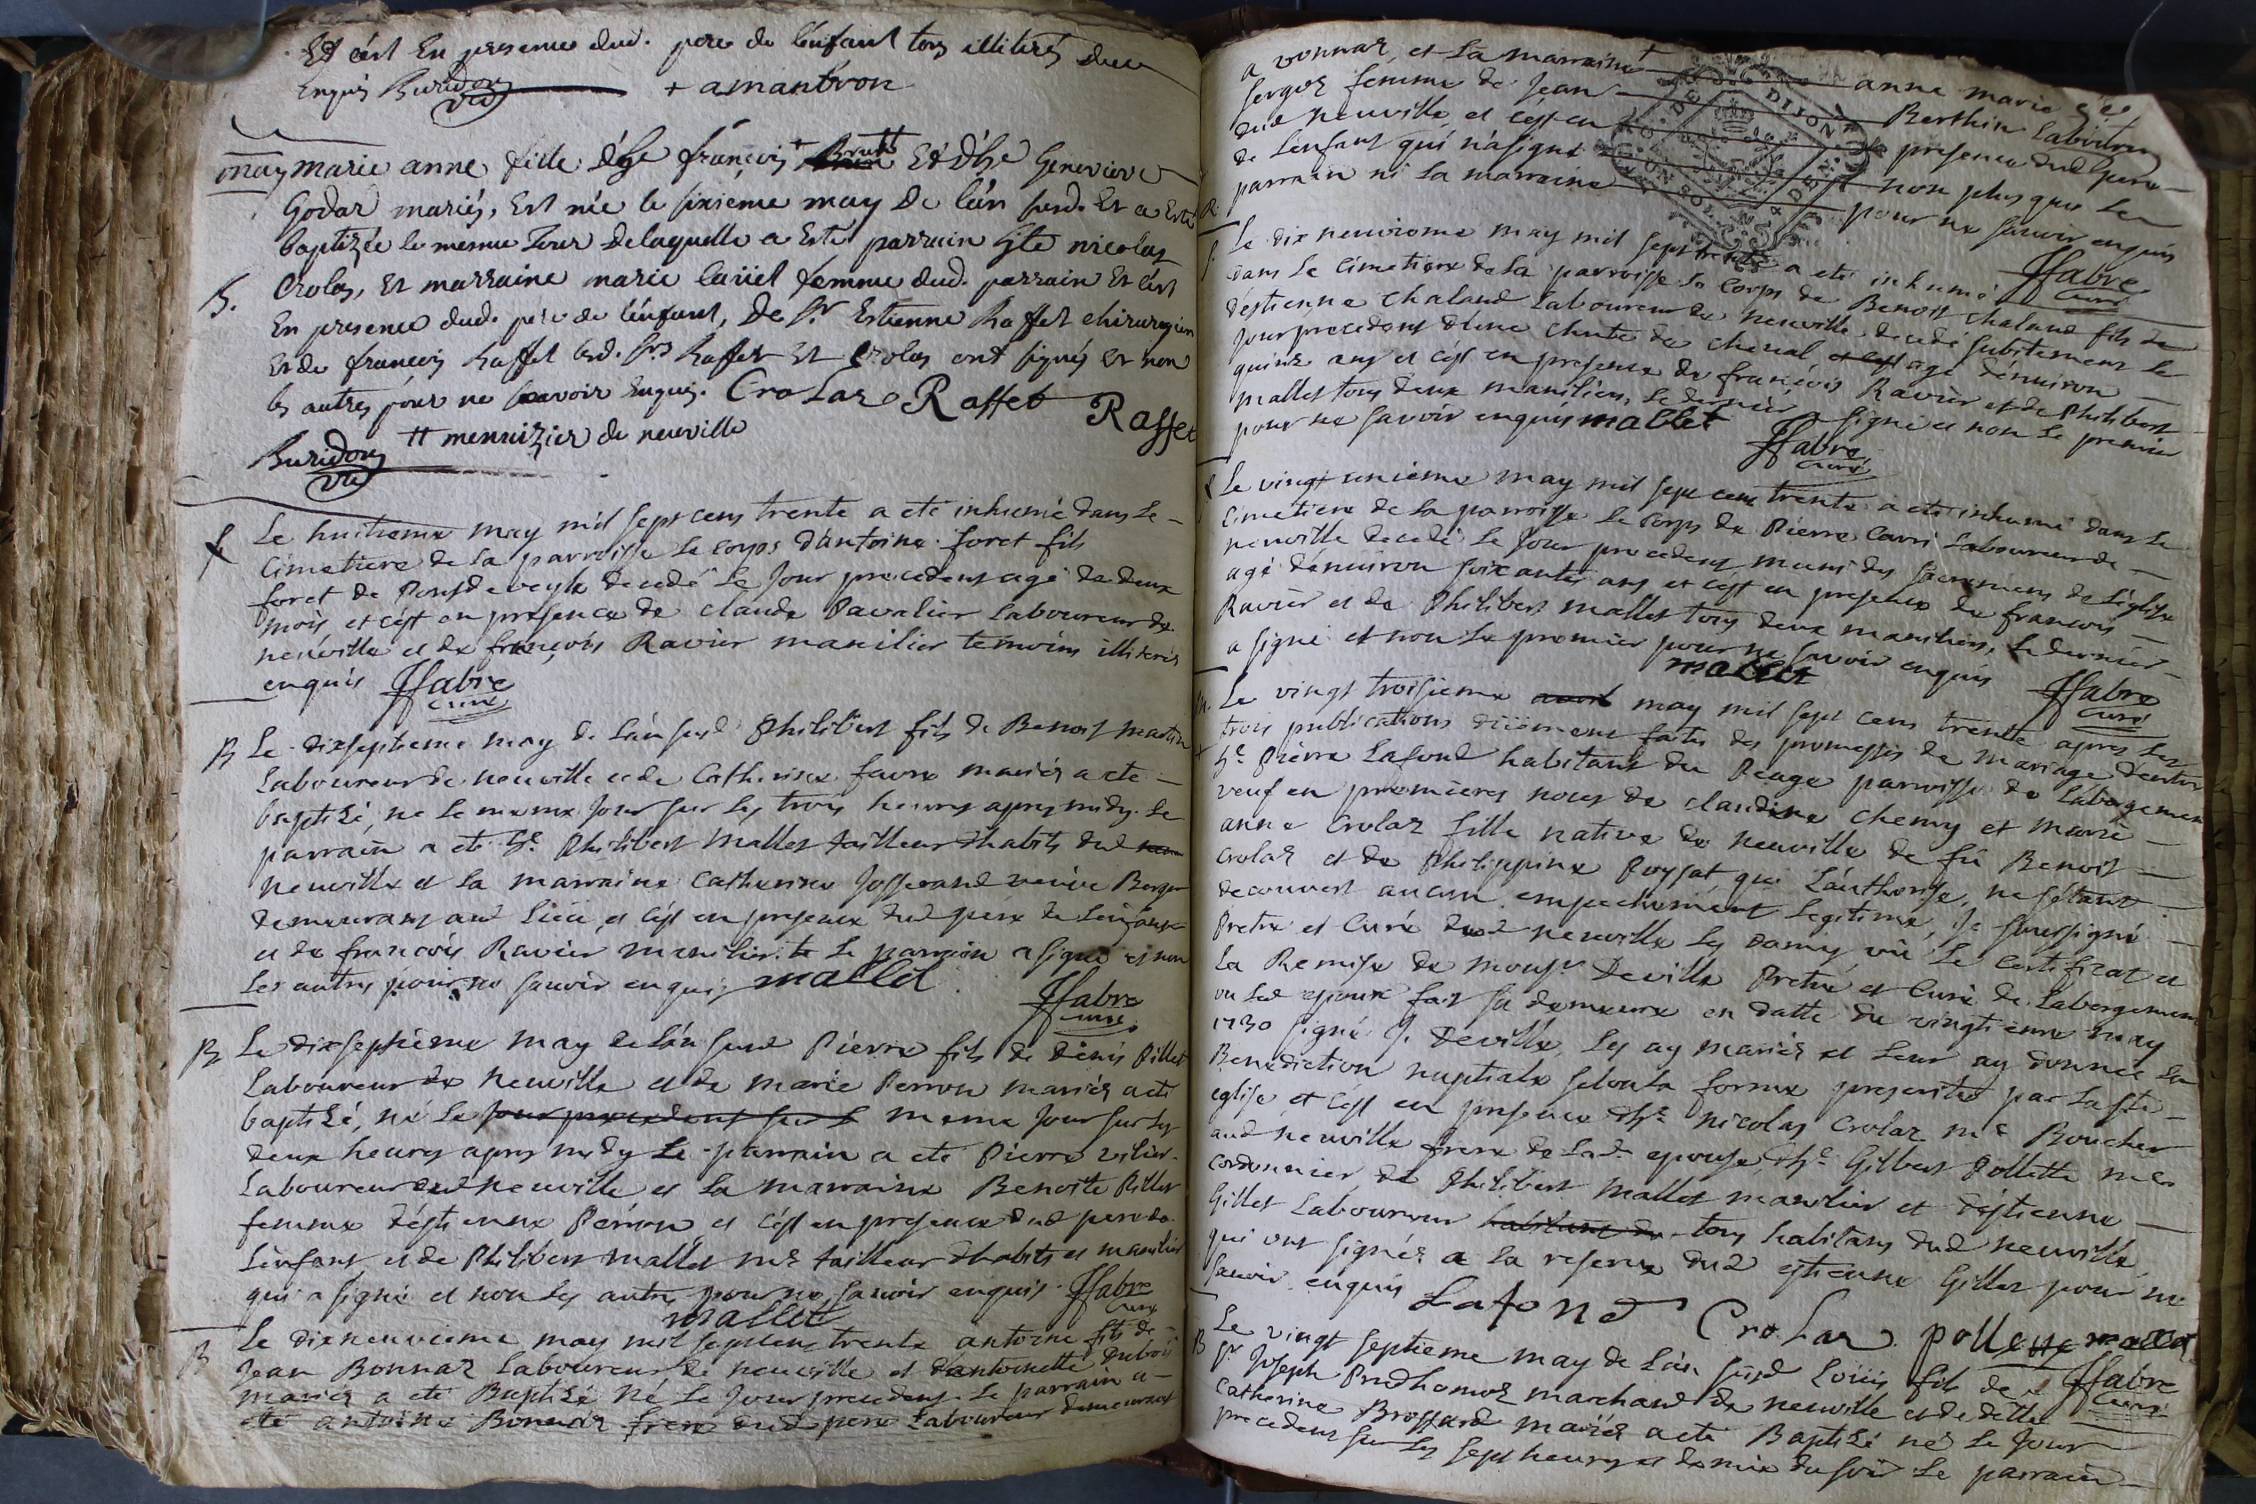 Et c'est En presence dud. pere de l'enfant tous illiterés
Enquis Buridon + amanbron
vic
may marie anne fille d'h françois Et d'h Genevieve
Godar mariés, Est née le sixieme may De l'an susd. Et a Esté
baptizée le mesme Jour de laquelle a Esté parrain hte nicolas
B. Crolas, Et marraine marie femme dud. parrain Et c'est
En presence dud. pere de l'enfant, De Sr Estienne Raffet chirurgien
Et de françois Raffet lesd. Srs Raffet Et Crolas ont signés et non
les autres pour ne scavoir Enquis. Crolas Raffet Raffet
Buridon ++ menuizier de neuville
vic
Le huitieme may mil sept cens trente a eté inhumé dans le
Cimetiere de la parroisse le corps d'antoine foret fils
foret de Pondeveyle decedé le Jour precedent agé de deux
mois et c'est en presence de claude Pavalier Laboureur de
neuville et de françois Ravier manilier temoins illiterés
enquis Ffabre
curé
B Le dixseptieme may de l'an susd Philibert fils de Benoit martin
Laboureur de neuville et de Catherine favre mariés a eté
baptisé, né le meme Jour sur les trois heures apres midy. Le
parrain a eté hte Philibert Mallet tailleur d'habits dud
neuville et la marraine Catherine Josserand veuve Berger
demeurans aud lieu, et c'est en presence dud père de l'enfant
et de françois Ravier manilier. Le parrain a signé et non
les autres pour ne savoir enquis mallet
Ffabre
curé
B Le dixseptieme may de l'an susd Pierre fils de Denis Pillet
Laboureur de neuville et de marie Perron mariés a eté
baptisé, né le jour precedent sur l meme Jour sur les
deux heures apres midy Le parrain a eté Pierre
Laboureur dud neuville et la marraine Benoite Pillet
femme d'estienne Perron, et c'est en presence dud pere de
l'enfant et de Philibert mallet me tailleur d'habits et manilier
qui a signé et non les autres pour ne savoir enquis. Ffabre
mallet curé
B Le dixneuvieme may mil sept cens trente antoine fils de
Jean Bonnaz Laboureur de neuville et d'antoinette Dubois
mariés a eté Baptisé Né le Jour precedent. Le parrain a
eté antoine Bonnaz frere dud pere Laboureur demeurant
a vonnaz, et la marraine + anne marie
femme de Jean Berthin Laboureur
dud neuville, et c'est en presence dud pere
de l'enfant qui n'a signé non plus que le
parrain ni la marraine pour ne savoir enquis
Ffabre
curé
Le dix neuvieme may mil sept trente a eté inhumé
dans le Cimetiere de la parroisse le corps de Benoit Chaland fils de
d'estienne Chaland Laboureur de neuville decedé subitement le
Jour precedent d'une chute de cheval agé d'environ
quinze ans et c'est en presence de françois Ravier et de Philibert
mallet tous deux maniliers, le dernier a signé et non le premier
pour ne savoir enquis mallet
Ffabre
curé
Le vingt unieme may mil sept cens trente a eté inhumé dans le
Cimetiere de la parroisse le corps de Pierre Laboureur de
neuville decedé le Jour precedent muni des sacremens de l'eglise
agé d'environ soixantes ans et c'est en presence de françois
Ravier et de Philibert mallet tous deux maniliers, le dernier
a signé et non le premier pour ne savoir enquis
mallet Ffabre
curé
Le vingt troisieme avril may mil sept cens trente apres les
trois publications düement faites des promesses de mariage d'entre
hte Pierre Lafond habitant du Peage parroisse de Labergement
veuf en premieres noces de claudine Chemy et marie
anne Crolaz fille native de neuville de fû Benoit
Crolaz et de Philippine Poysat qui l'authorise, ne s'étant
decouvert aucun empechement legitime, Je soussigné
Pretre et Curé dud neuville les vû le certificat et
la Remise de Monsr Deville Pretre et Curé de Labergement
ou led epoux fait sa demeure en datte du vingtieme may
1730 signé J. Deville, les ay mariés et leur ay donnée la
Benediction nuptiale selon la forme prescrite par la Ste
eglise et c'est en presence d'hte Nicolas Crolaz me Boucher
aud neuville frere de lad. epouse, d'hte Gilbert Pollette me
cordonnier, de Philibert Mallet manilier et d'estienne
Gillet Laboureur habitant de tous habitans dud neuville
qui ont signés a la reserve dud estienne Gillet pour ne
savoir enquis Lafond Crolas pollette mallet
Ffabre
curé
B Le vingt septieme may de l'an susd Loüis fils de
Sr Joseph Prudhomoz marchand de neuville et de dlle
Catherine Brossard mariés a eté Baptisé né le Jour
precedent sur les sept heures et demie du soir Le parrain